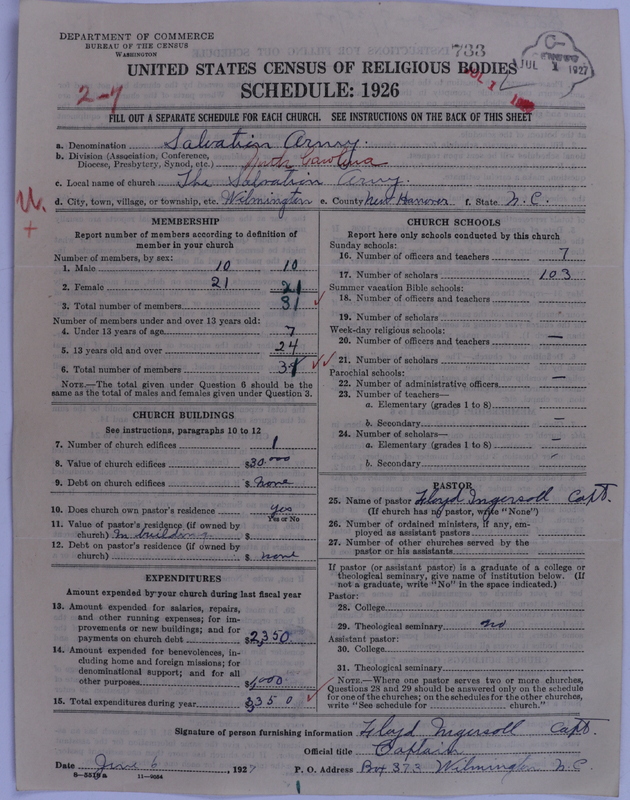 DEPARTMENT OF COMMERCE
BUREAU OF THE CENSUS
WASHINGTON
733
JUL 1 1927
UNITED STATES CENSUS OF RELIGIOUS BODIES
SCHEDULE: 1926
2-7
FILL OUT A SEPARATE SCHEDULE FOR EACH CHURCH. SEE INSTRUCTIONS ON THE BACK OF THIS SHEET
a. Denomination Salvation Army.
b. Division (Association, Conference, Diocese, Presbytery, Synod, etc.) North Carolina
c. Local name of church The Salvation Army.
d. City, town, village, or township, etc. Wilmington e. County New Hanover f. State N.C.
MEMBERSHIP
Report number of members according to definition of
member in your church
Number of members, by sex:
1. Male 10 10
2. Female 21 21
3. Total number of members 31
Number of members under and over 13 years old:
4. Under 13 years of age 7
5. 13 years old and over 24
6. Total number of members 31
NOTE.—The total given under Question 6 should be the
same as the total of males and females given under Question 3.
CHURCH BUILDINGS
See instructions, paragraphs 10 to 12
7. Number of church edifices 1
8. Value of church edifices $30,000
9. Debt on church edifices $ None
10. Does church own pastor's residence Yes
Yes or No
11. Value of pastor's residence (if owned by
church) In building $
12. Debt on pastor's residence (if owned by
church) $ none
EXPENDITURES
Amount expended by your church during last fiscal year
13. Amount expended for salaries, repairs,
and other running expenses; for im-
provements or new buildings; and for
payments on church debt $2,350
14. Amount expended for benevolences, in-
cluding home and foreign missions; for
denominational support; and for all
other purposes $1,000
15. Total expenditures during year $3350
CHURCH SCHOOLS
Report here only schools conducted by this church
Sunday schools:
16. Number of officers and teachers 7
17. Number of scholars 103
Summer vacation Bible schools:
18. Number of officers and teachers
19. Number of scholars
Week-day religious schools:
20. Number of officers and teachers —
21. Number of scholars
Parochial schools:
22. Number of administrative officers —
23. Number of teachers—
a. Elementary (grades 1 to 8)
b. Secondary —
24. Number of scholars—
a. Elementary (grades 1 to 8) —
b. Secondary
PASTOR
25. Name of pastor Lloyd Ingersoll Capt.
(If church has no pastor, write "None")
26. Number of ordained ministers, if any, em-
ployed as assistant pastors
27. Number of other churches served by the
pastor or his assistants
If pastor (or assistant pastor) is a graduate of a college or
theological seminary, give name of institution below. (If
not a graduate, write "No" in the space indicated.)
Pastor:
28. College
29. Theological seminary no
Assistant pastor:
30. College
31. Theological seminary
NOTE.—Where one pastor serves two or more churches,
Questions 28 and 29 should be answered only on the schedule
for one of the churches; on the schedules for the other churches,
write "See schedule for church."
Signature of person furnishing information Lloyd Ingersoll Capt.
Official title Captain
Date June 6, 1927 P. O. Address Box 373 Wilmington N.C.
11—9034